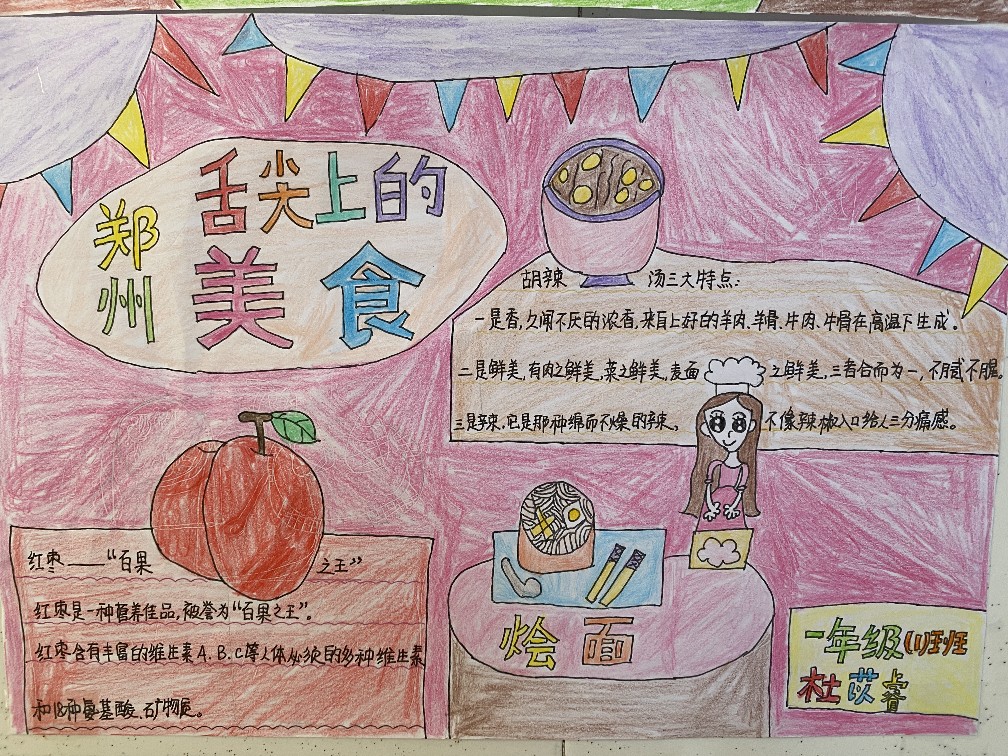 舌尖上的
郑州
美食
胡辣汤三大特点：
一是香，久闻不厌的浓香，来自上好的羊肉、羊骨、牛肉、牛骨在高温下生成。
二是鲜美，有肉之鲜美，菜之鲜美，麦面之鲜美，三者合而为一，不腻不腥。
三是辣，它是那种绵而不燥的辣、不像辣椒入口给人三分痛感。
红枣——“百果之王”
红枣是一种营养佳品，被誉为“百果之王”。
红枣含有丰富的维生素A、B、C等人体必须的多种维生素
和18种氨基酸、矿物质。
烩面
一年级(1)班
杜苡睿